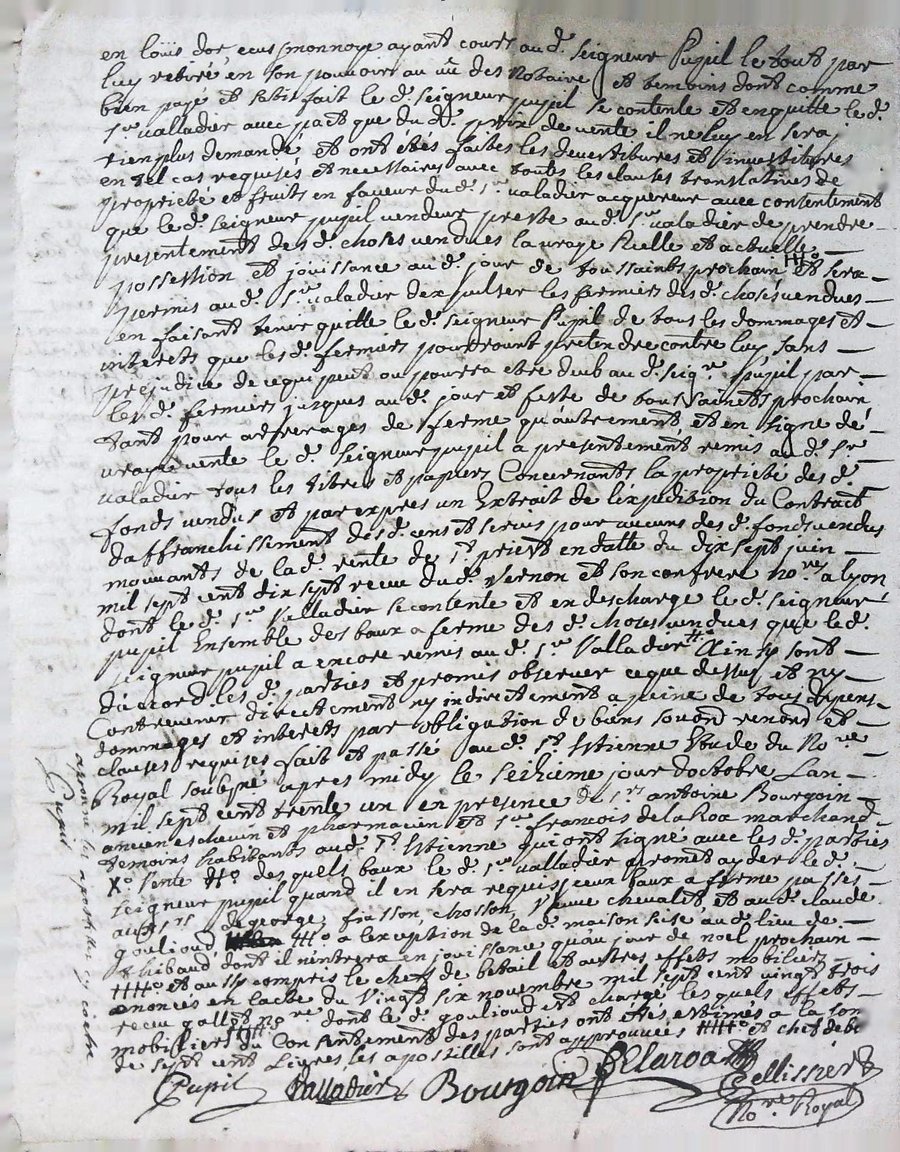 en loüis dor ecus monnoye ayant cours au d. seigneur Pupil le tout par
luy retiré en son pouvoir au vû des Notaire et temoins dont comme
bien payé et satisfait le d. seigneur pupil se contente et en quitte le d.
Sr. valladier avec pact que du dt. prix de vente il ne luy en sera
rien plus demandé et ont étés faites les devestitures et investitures
en tel cas requises et necessaires avec toutes les clauses translatives de
propriété et fruits en faveur du d. Sr. valadier acquereur avec contentement
que le d. seigneur pupil vendeur preste au d. Sr. valadier de prendre
presentement des d. choses vendues la vraye reelle et actuelle
possession et jouissance au d. jour de toussaints prochain et sera
permis au d. Sr. valadier dexpulser les fermiers des d. choses vendues
en faisant tenir quitte le d. seigneur Pupil de tous les dommages et
interets que les d. fermiers pourront pretendre contre luy sans
prejudice de ce qui peut ou pourra etre deub au d. Seigr. Pupil par
les d. fermiers jusques au d. jour et feste de toussaints prochain
tant pour arrerages de ferme qu'autrement, et en signe de
vraye vente le d. Seigneur pupil a presentement remis au d. Sr.
valadier tous les titres et papiers Concernants la propriété des d.
fonds vendus et par expres un Extrait de l'expedition du Contract
daffranchissement des d. cens et servis pour aucuns des d. fonds vendus
mouvants de la d. rente de St. priest en datte du dix sept juin
mil sept cent dix sept receu du d. Vernon et son confrere nores. a lyon
dont le d. Sr. Valladier se contente et en descharge le d. seigneur
pupil Ensemble des baux a ferme des d. choses vendues que le d.
seigneur pupil a encore remis au d. Sr. Valladier Ainsy sont
d'acord les d. parties et promis observer ce que dessus et ny
Contrevenir directement ny indirectement a peine de tous depens
dommages et interets par obligation de biens soumd. renond. et
clauses requises fait et passé au d. St. Etienne Etude du Nore
Royal soubsné apres midy le Seizieme jour doctobre Lan
mil sept cent trente un en presence de Srs. antoine Bourgoin
ancien eschevin et pharmacien et Sr. francois delaRoa marchand
temoins habitants au d. St. Etienne qui ont signé avec les d. parties
X° Vente #° des quels baux le d. Sr. valladier promet ayder le d.
seigneur pupil quand il en sera requis, iceux baux a ferme passes
aux Srs. de george, fiasson, chosson, veuve chevalet et au d. claude
goulioud #° a lexception de la d. maison sise au d. lieu de
thibaud dont il n'entrera en jouissance qu'au jour de noel prochain
#° et aussy compris le chef de betail et autres effets mobiliers
enoncés en lacte du vingt six novembre mil sept cent vingt trois
receu gallet nore dont le d. goulioud est chargé, les quels effets
mobilliers du Consentement des parties ont étés estimés a la som
de sept cent Livres les apostilles sont approuvées #° et chef de be
approuvé les apostilles cy contre
Pupil
Pupil Valladier Bourgoin F Delaroa Pellissier
Nore Royal